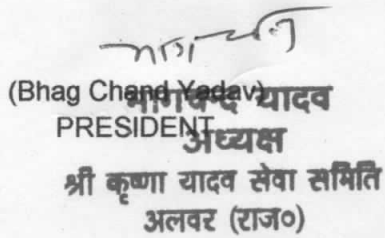 (Bhag Chand Yadav)
PRESIDENT
भागचन्द यादव
अध्यक्ष
श्री कृष्णा यादव सेवा समिति
अलवर (राज०)